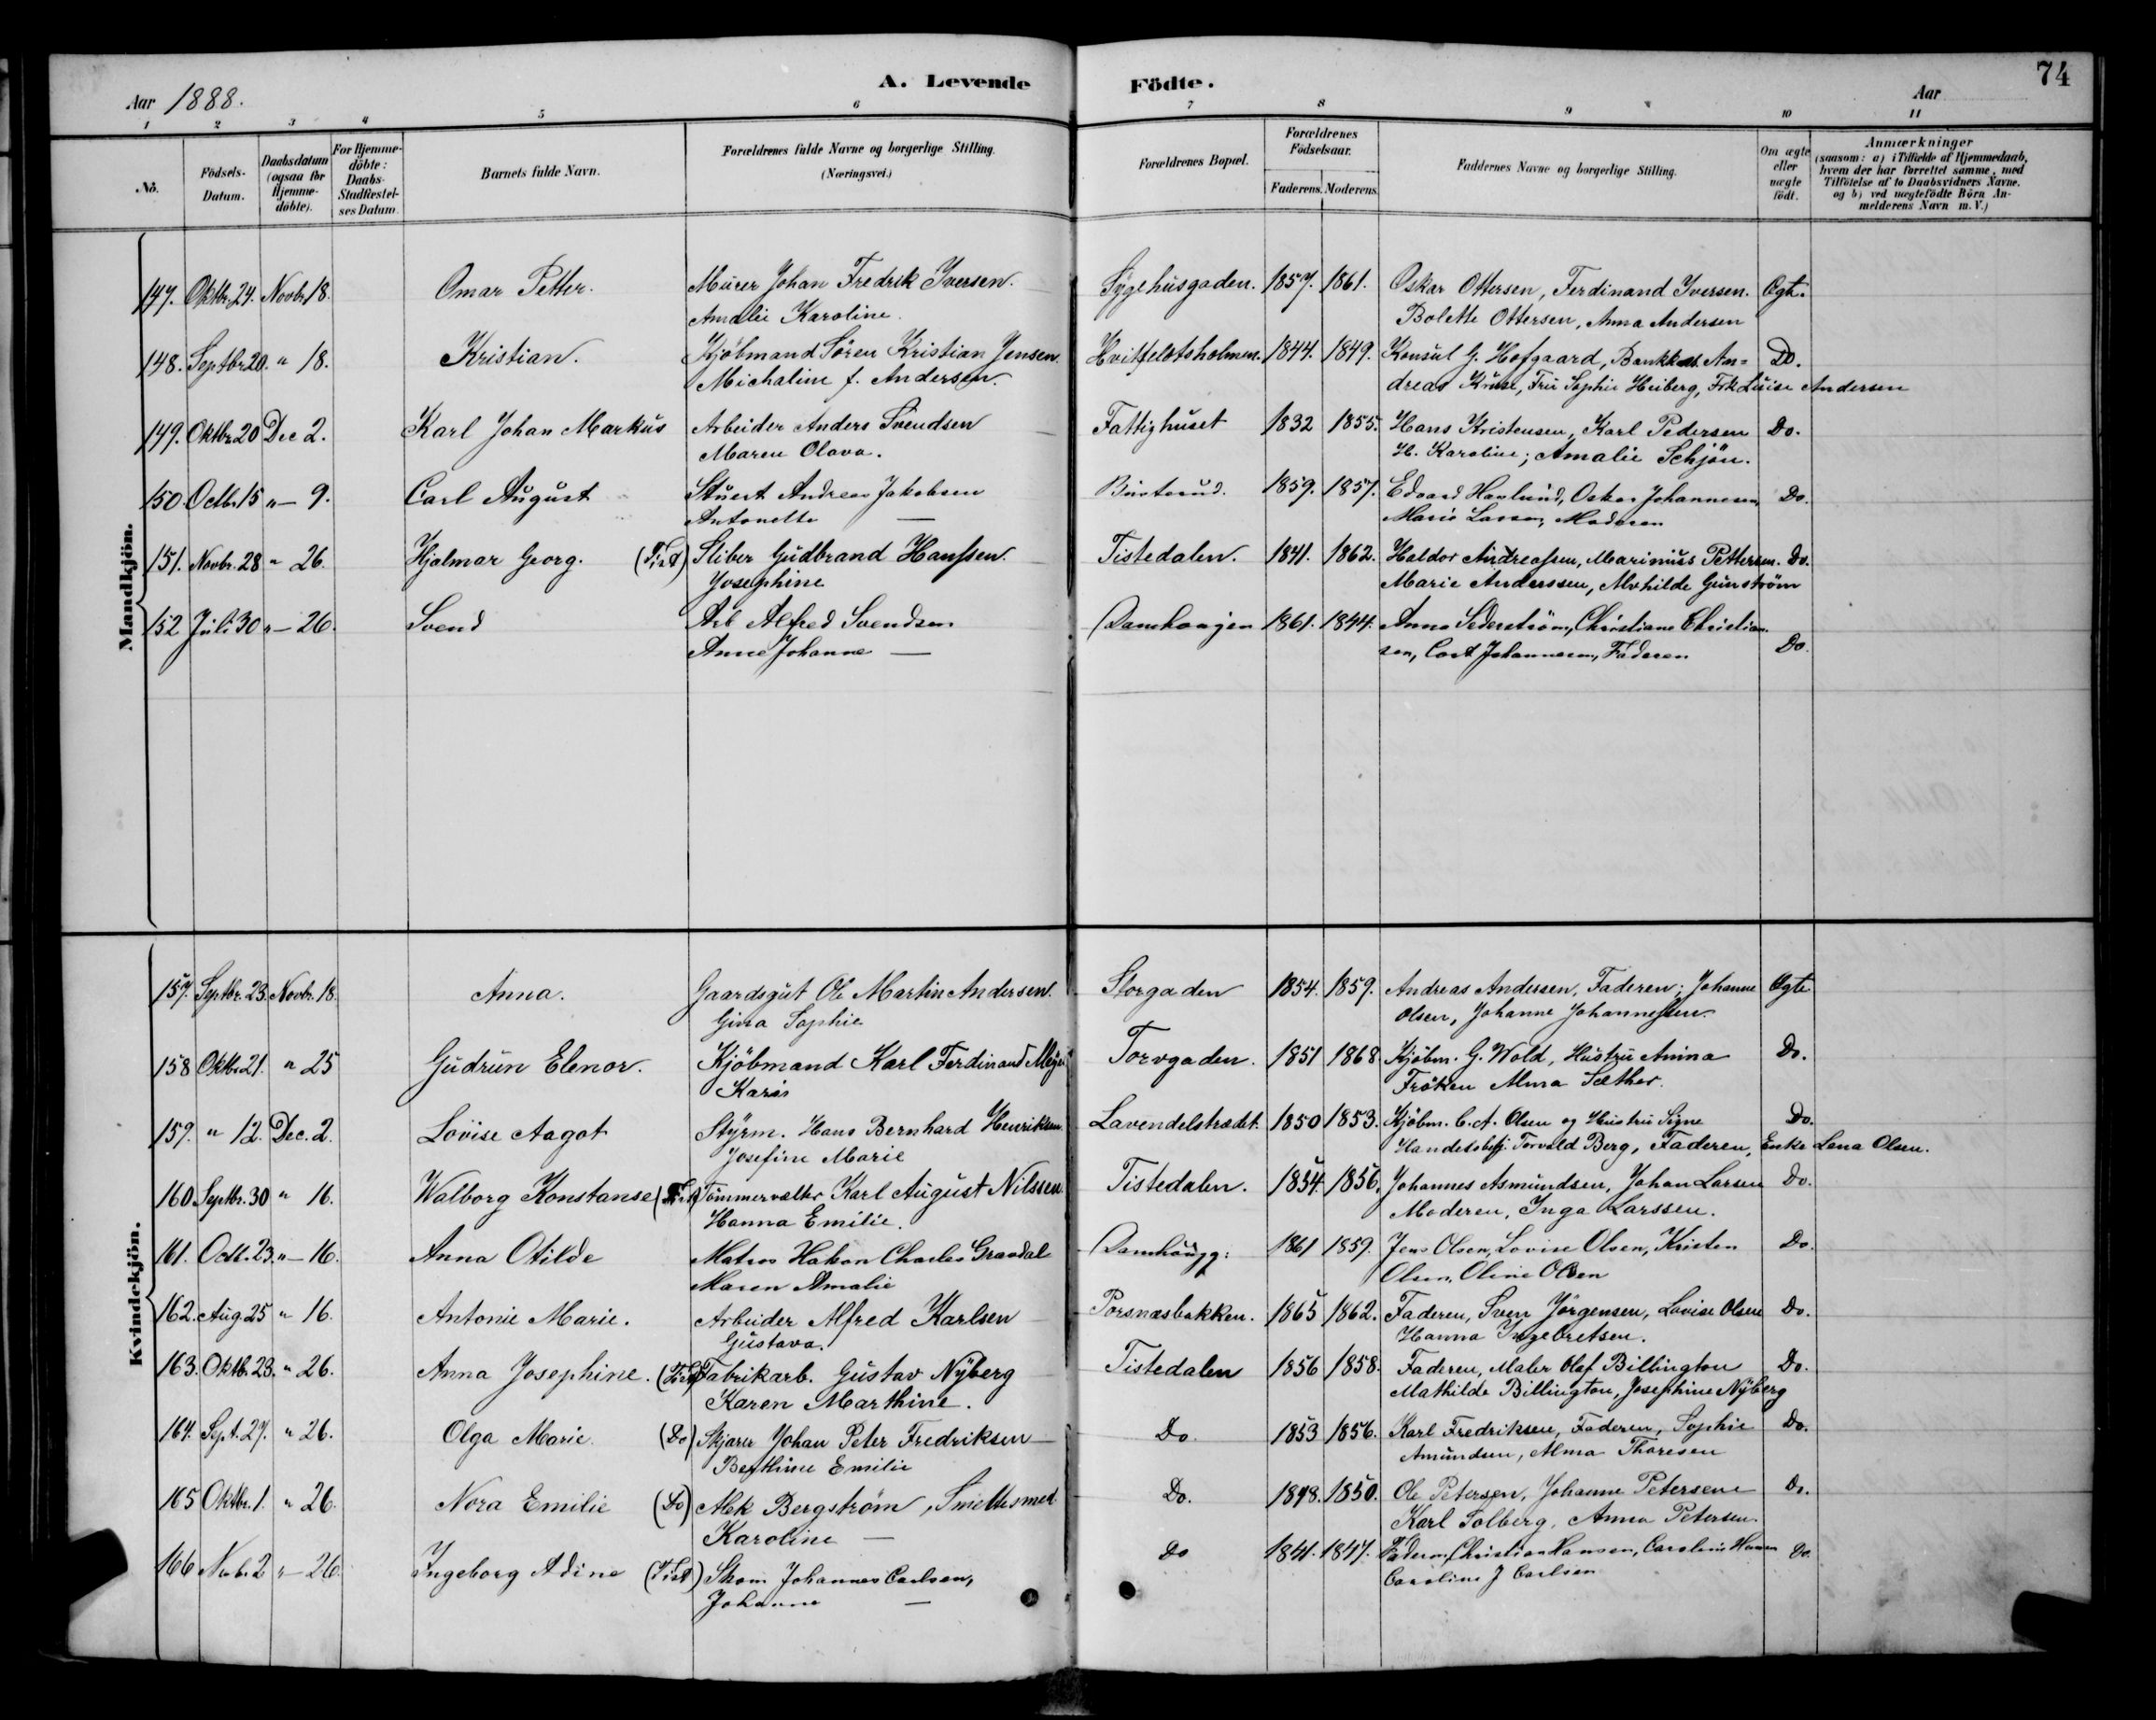 74
Aar 1888.
A. Levende Födte.
Aar
1 2 3 4 5 6 7 8 9 10 11
No.
Födsels-Datum.
Daabsdatum (ogsaa for Hjemme-döbte).
For Hjemme-döbte: Daabs-Stadfæstel-ses Datum.
Barnets fulde Navn.
Forældrenes fulde Navne og borgerlige Stilling.
(Næringsvei.)
Forældrenes Bopæl.
Forældrenes Födselsaar.
Faderens. Moderens.
Faddernes Navne og borgerlige Stilling.
Om ægte eller uægte födt.
Anmærkninger
(saasom: a) i Tilfælde af Hjemmedaab,
hvem der har forrettet samme, med
Tilföielse af to Daabsvidners Navne.
og b) ved uægtefödte Börn An-
melderens Navn m.V.)
Mandkjön.
147. Oktbr. 24. Novbr 18. Omar Petter. Murer Johan Fredrik Iversen. Sygehusgaden. 1857. 1861. Oskar Ottersen, Ferdinand Iversen. Ægt.
Amalie Karoline. Bolette Ottersen, Anna Andersen
148. Septbr 20. " 18. Kristian. Kjöbmand Sören Kristian Jensen. Hvitfeldtsholmen. 1844. 1849. Konsul G. Hofgaard, Bankkas. An= Do.
Michaline f. Andersen. dreas Kruse, Fru Sophie Heiberg, Frk Luise Andersen
149. Oktbr 20 Dec 2. Karl Johan Markus Arbeider Anders Svendsen Fattighuset 1832 1855. Hans Kristensen, Karl Pedersen Do.
Maren Olava. H. Karoline; Amalie Schjön.
150. Octbr. 15 " — 9. Carl August Stuert Andreas Jakobsen 1859. 1857. Edvard Havlund, Oskar Johannesen, Do.
Antonette — Marie Larsen, Moderen
151. Novbr. 28 " 26. Hjalmar Georg. (Tist) Sliber Gudbrand Hanssen. Tistedalen. 1841. 1862. Haldor Andreassen, Marinius Pettersen. Do.
Josephine Marie Anderssen, Mathilde Gunström
152 Juli 30 " — 26. Svend Arb Alfred Svendsen Damhaugen 1861. 1844. Anna Sederström, Christiane Christian-
Anne Johanne — sen, Carl Johannesen, Faderen Do.
Kvindekjön.
157. Septbr. 23. Novbr. 18. Anna. Gaardsgut Ole Martin Andersen. Storgaden 1854. 1859. Andreas Andersen, Faderen; Johanne Ægte
Gina Sophie Olsen, Johanne Johannessen.
158 Oktbr 21. " 25 Gudrun Elenor. Kjöbmand Karl Ferdinand Meyer Torvgaden. 1851 1868. Kjöbm. G. Wold, Hustru Anina Do.
Karis Fröken Alma Sæther.
159. " 12. Dec. 2. Lovise Aagot Styrm. Hans Bernhard Henriksen Lavendelstrædet. 1850 1853. Kjöbm. C. A. Olsen og Hustru Signe Do.
Josefine Marie Handelsbetj. Torvald Berg, Faderen, Enke Lena Olsen.
160. Septbr. 30 " 16. Walborg Konstanse (Tist) Tömmervælter Karl August Nilssen. Tistedalen. 1854. 1856. Johannes Asmundsen, Johan Larsen Do.
Hanna Emilie. Moderen, Inga Larssen.
161. Octb. 23. " — 16. Anna Otilde Matros Hakon Charles Grandal Damhaugg: 1861 1859. Jens Olsen, Lovise Olsen, Kristen Do.
Maren Amalie Olsen, Oline Olsen
162. Aug. 25 " 16. Antonie Marie. Arbeider Alfred Karlsen Porsnæsbakken. 1865 1862. Faderen, Sven Jörgensen, Lovise Olsen Do.
Gustava. Hanna Ingebretsen.
163. Oktbr. 23. " 26. Anna Josephine. (Tist) Fabrikarb. Gustav Nyberg Tistedalen 1856 1858. Faderen, Maler Olaf Billington Do.
Karen Marthine. Mathilde Billington, Josephine Nyberg
164. Sept. 27. " 26. Olga Marie. (Do) Skjærer Johan Peter Fredriksen Do. 1853 1856. Karl Fredriksen, Faderen, Sophie Do.
Berthine Emilie Amundsen, Alma Thoresen
165 Oktbr. 1. " 26. Nora Emilie (Do) Alek Bergström, Smeltesmed Do. 1848. 1850. Ole Petersen, Johanne Petersen Do.
Karoline — Karl Solberg, Anna Petersen.
166 Novbr. 2 " — 26 Ingeborg Adine (Tist) Skom. Johannes Carlsen, Do 1841. 1847. Faderen, Christian Hansen, Caroline Hansen Do.
Johanne — Caroline J Carlsen